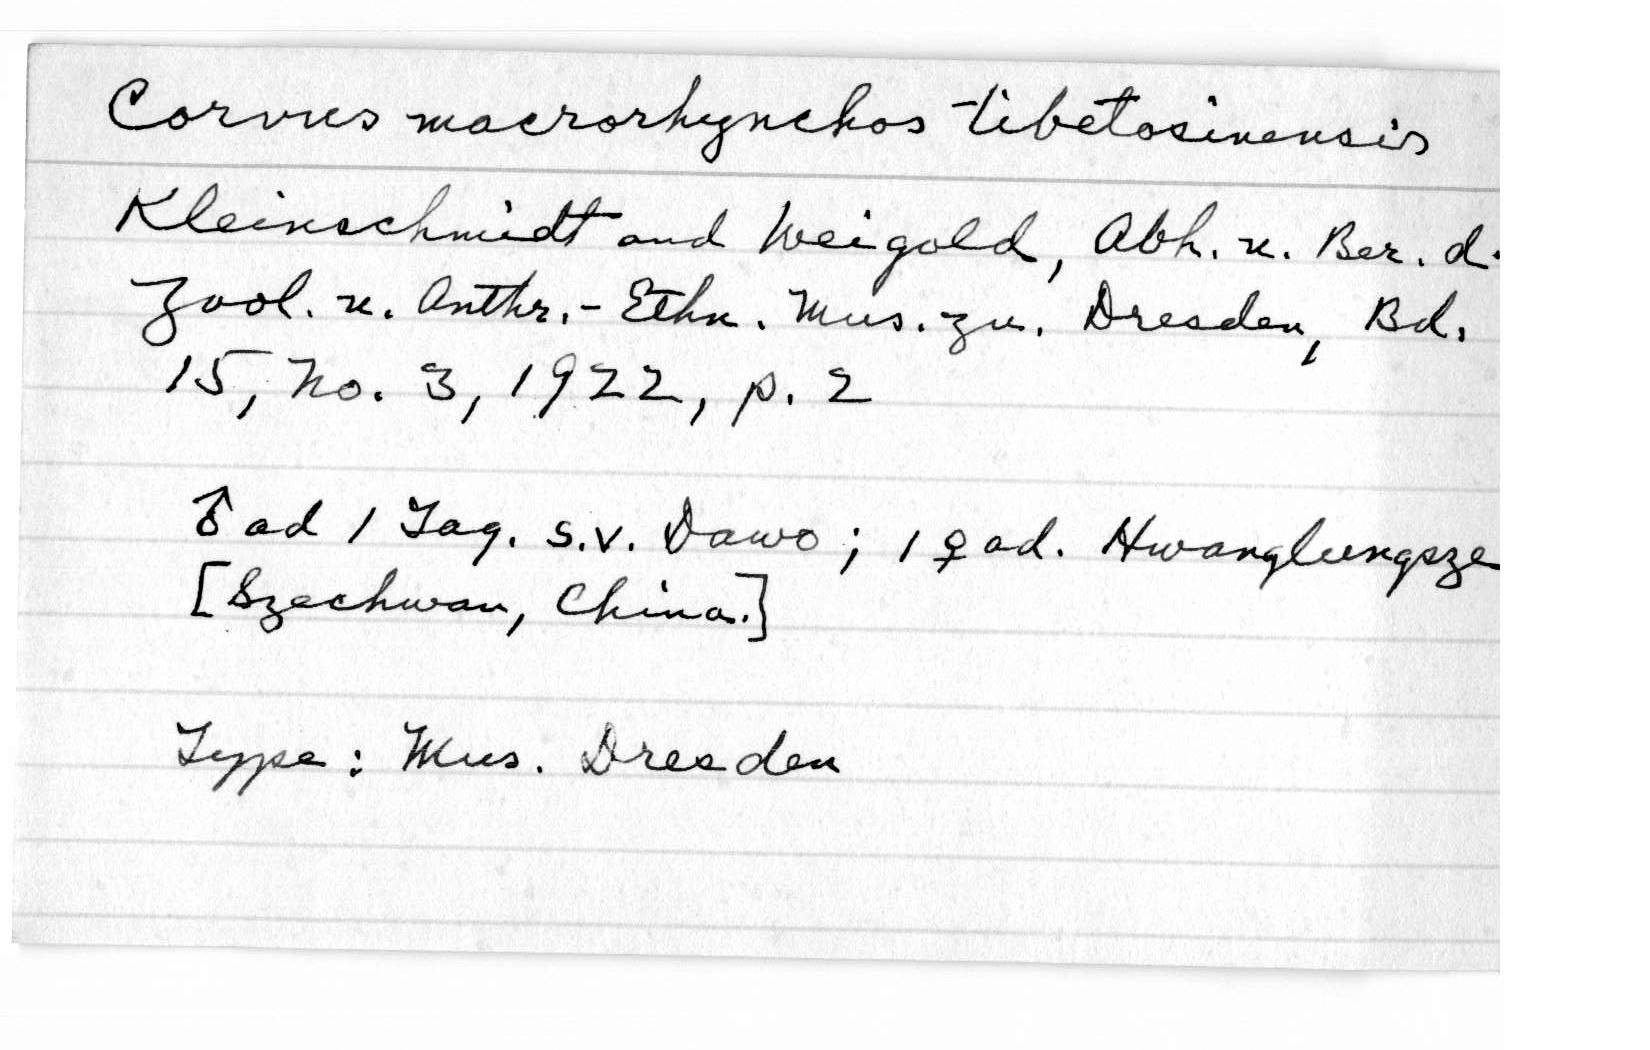 Corvus macrorhynchos tibetosinensis
Kleinschmidt and Weigold, Abh. u. Ber. d.
Zool. u. Anthr.- Ethn. Mus. zu. Dresden, Bd.
15, No. 3, 1922, p. 2
♂ ad 1 Tag. s.v. Dawo; 1 ♀ ad. Hwanglungsze
[Szechwan, China.]
Type: Mus. Dresden